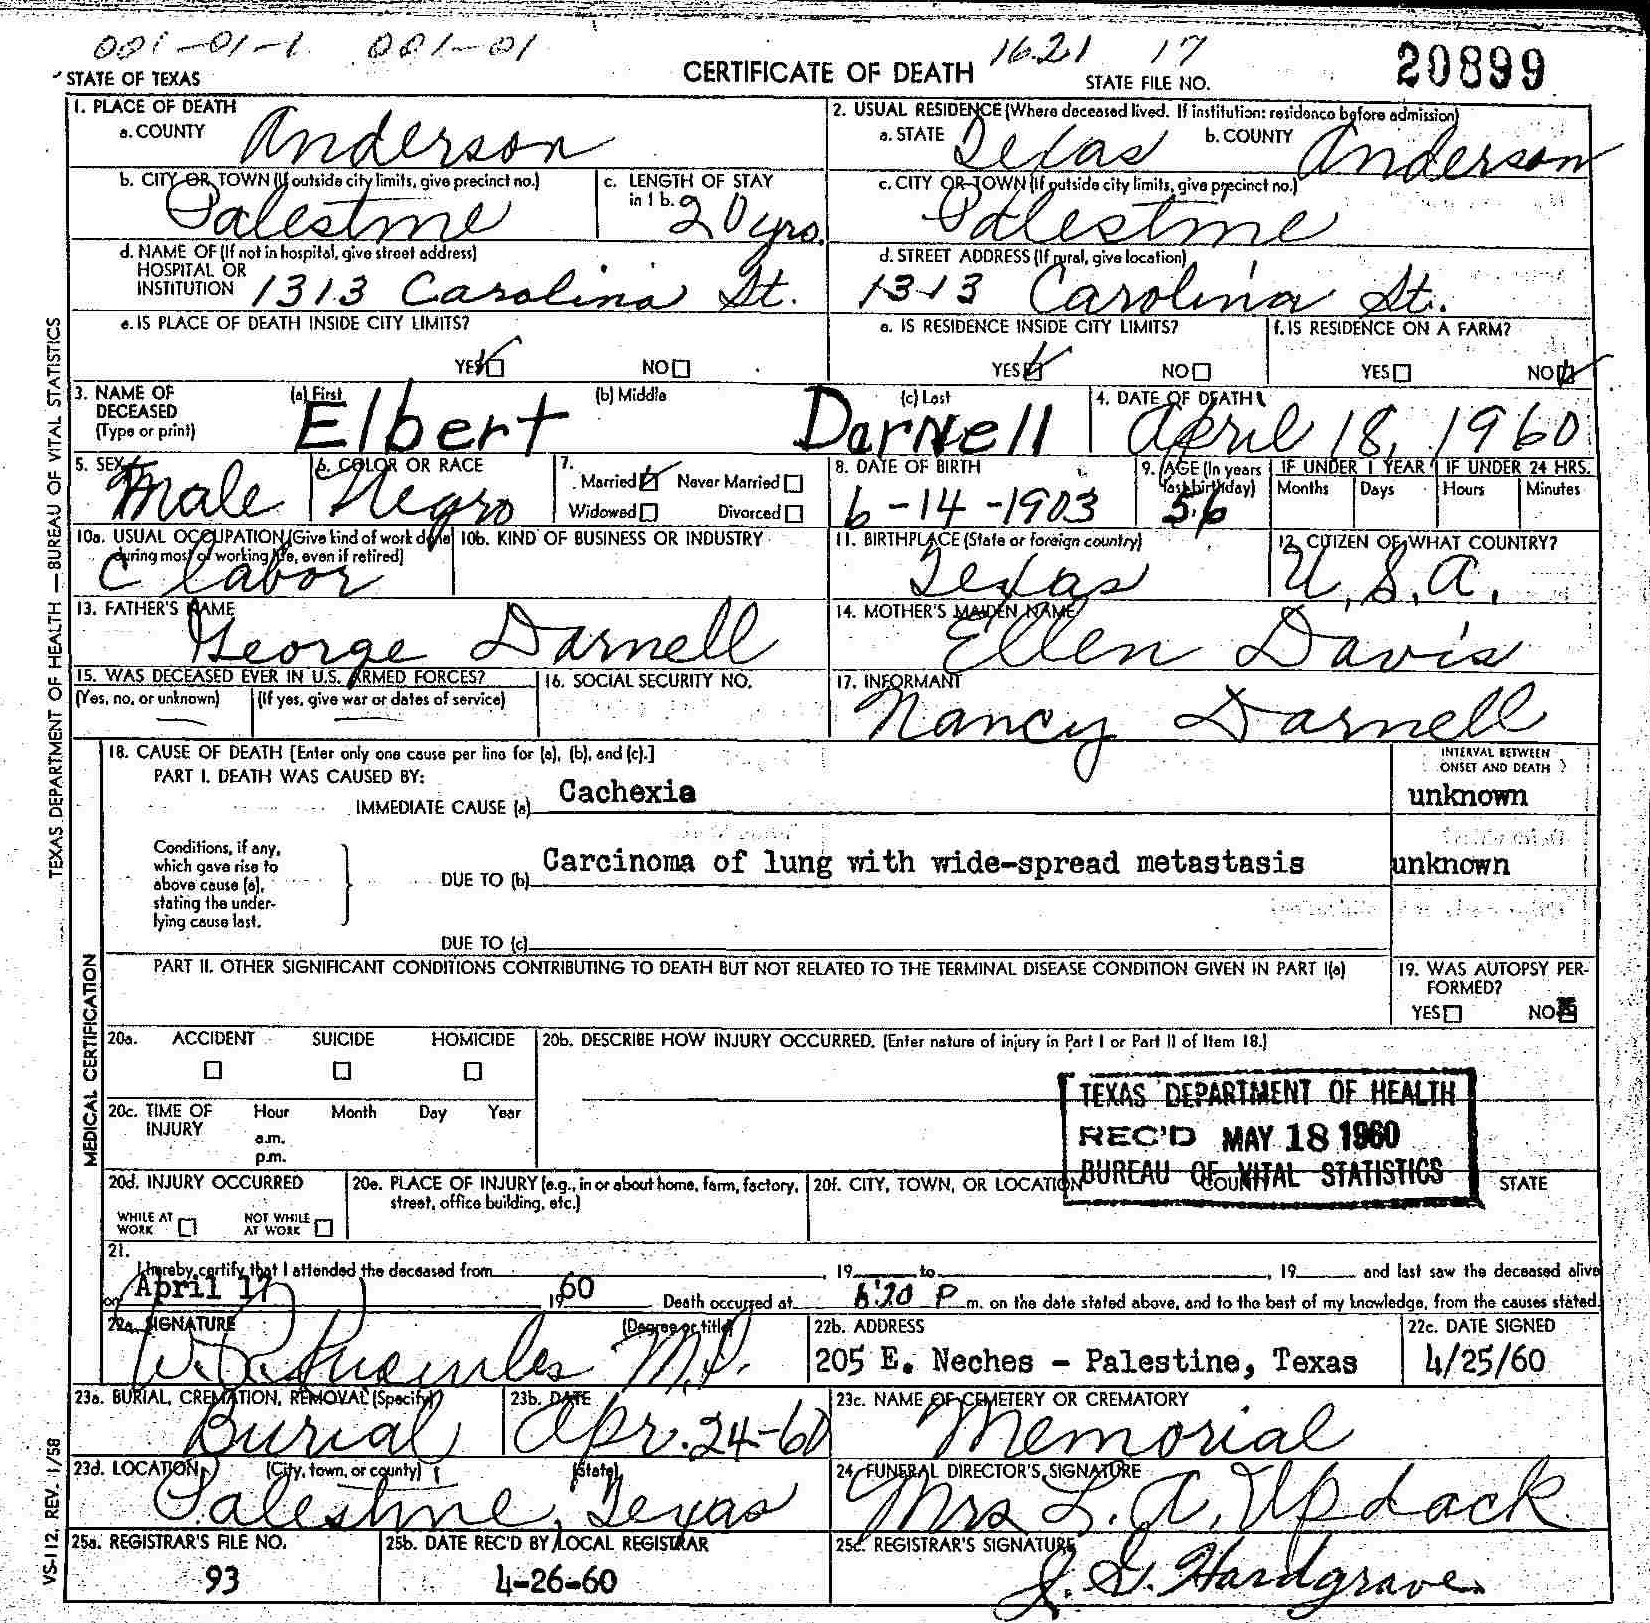 001-01-1 001-01 1621 17
STATE OF TEXAS CERTIFICATE OF DEATH STATE FILE NO. 20899
1. PLACE OF DEATH
a. COUNTY Anderson
2. USUAL RESIDENCE (Where deceased lived. If institution: residence before admission)
a. STATE Texas b. COUNTY Anderson
b. CITY OR TOWN (If outside city limits, give precinct no.) Palestine
c. LENGTH OF STAY in 1 b. 20 yrs.
c. CITY OR TOWN (If outside city limits, give precinct no.) Palestine
d. NAME OF (If not in hospital, give street address)
HOSPITAL OR
INSTITUTION 1313 Carolina St.
d. STREET ADDRESS (If rural, give location)
1313 Carolina St.
e. IS PLACE OF DEATH INSIDE CITY LIMITS?
YES NO
e. IS RESIDENCE INSIDE CITY LIMITS?
YES NO
f. IS RESIDENCE ON A FARM?
YES NO
3. NAME OF
DECEASED
(Type or print)
(a) First Elbert (b) Middle (c) Last Darnell
4. DATE OF DEATH April 18, 1960
5. SEX Male
6. COLOR OR RACE Negro
7.
Married Never Married
Widowed Divorced
8. DATE OF BIRTH 6-14-1903
9. AGE (In years last birthday) 56
IF UNDER 1 YEAR
Months Days
IF UNDER 24 HRS.
Hours Minutes
10a. USUAL OCCUPATION (Give kind of work done
during most of working life, even if retired)
C labor
10b. KIND OF BUSINESS OR INDUSTRY
11. BIRTHPLACE (State or foreign country)
Texas
12. CITIZEN OF WHAT COUNTRY?
U.S.A.
13. FATHER'S NAME
George Darnell
14. MOTHER'S MAIDEN NAME
Ellen Davis
15. WAS DECEASED EVER IN U.S. ARMED FORCES?
(Yes, no, or unknown) (If yes, give war or dates of service)
16. SOCIAL SECURITY NO.
17. INFORMANT
Nancy Darnell
18. CAUSE OF DEATH [Enter only one cause per line for (a), (b), and (c).]
INTERVAL BETWEEN
ONSET AND DEATH
PART I. DEATH WAS CAUSED BY:
IMMEDIATE CAUSE (a) Cachexia unknown
Conditions, if any,
which gave rise to
above cause (a),
stating the under-
lying cause last.
DUE TO (b) Carcinoma of lung with wide-spread metastasis unknown
DUE TO (c)
PART II. OTHER SIGNIFICANT CONDITIONS CONTRIBUTING TO DEATH BUT NOT RELATED TO THE TERMINAL DISEASE CONDITION GIVEN IN PART I(a)
19. WAS AUTOPSY PER-
FORMED?
YES NO
20a. ACCIDENT SUICIDE HOMICIDE
20b. DESCRIBE HOW INJURY OCCURRED. (Enter nature of injury in Part I or Part II of Item 18.)
20c. TIME OF
INJURY
Hour Month Day Year
a.m.
p.m.
TEXAS DEPARTMENT OF HEALTH
REC'D MAY 18 1960
BUREAU OF VITAL STATISTICS
20d. INJURY OCCURRED
WHILE AT WORK NOT WHILE AT WORK
20e. PLACE OF INJURY (e.g., in or about home, farm, factory,
street, office building, etc.)
20f. CITY, TOWN, OR LOCATION COUNTY STATE
21.
I hereby certify that I attended the deceased from , 19 to , 19 and last saw the deceased alive
on April 17 1960 Death occurred at 6:20 P m. on the date stated above, and to the best of my knowledge, from the causes stated.
22a. SIGNATURE (Degree or title)
M.D.
22b. ADDRESS
205 E. Neches - Palestine, Texas
22c. DATE SIGNED
4/25/60
23a. BURIAL, CREMATION, REMOVAL (Specify)
Burial
23b. DATE
Apr. 24-60
23c. NAME OF CEMETERY OR CREMATORY
Memorial
23d. LOCATION (City, town, or county) (State)
Palestine, Texas
24. FUNERAL DIRECTOR'S SIGNATURE
Mrs L. A. Updack
25a. REGISTRAR'S FILE NO.
93
25b. DATE REC'D BY LOCAL REGISTRAR
4-26-60
25c. REGISTRAR'S SIGNATURE
Hardgrave
TEXAS DEPARTMENT OF HEALTH — BUREAU OF VITAL STATISTICS
MEDICAL CERTIFICATION
VS-112. REV. 1/58